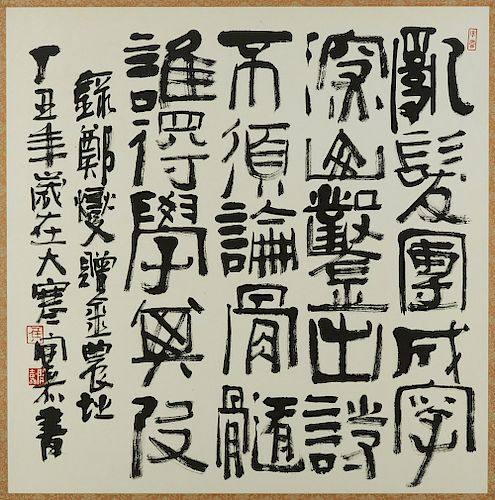 亂髮團成字
深山鑿出詩
不須論骨髓
誰得學其皮
錄鄭燮贈金農
丁丑年歲在大寒書